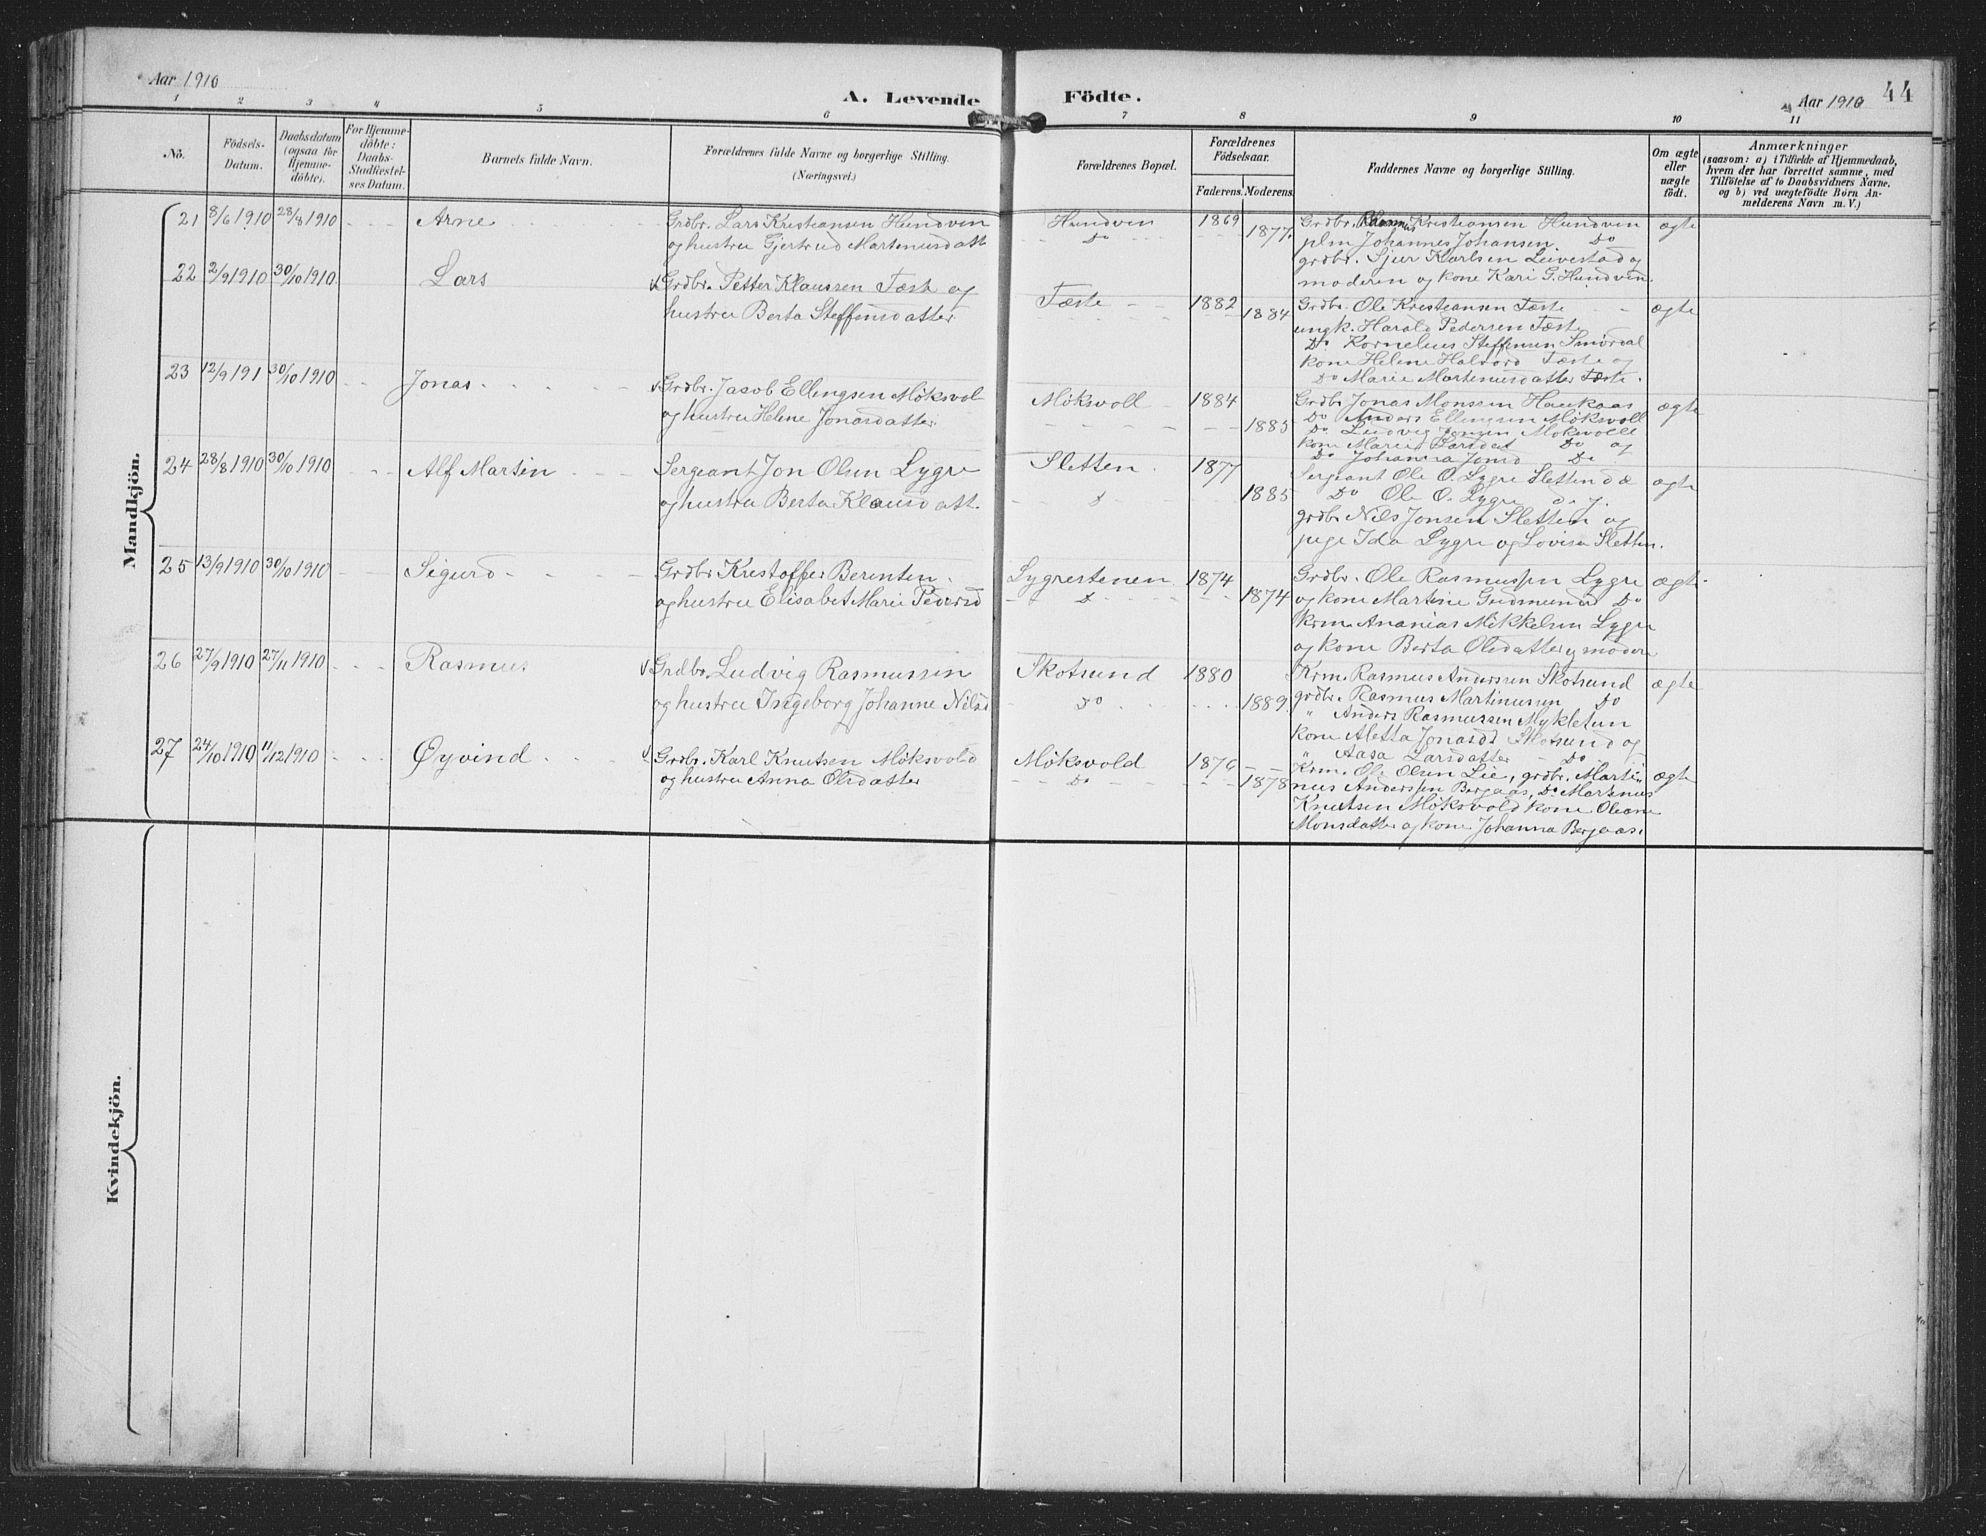 Aar 1910
A. Levende Födte.
Aar 1910
44
1 2 3 4 5 6 7 8 9 10 11
No.
Födsels-
Datum.
Daabsdatum
(ogsaa for
Hjemme-
döbte).
For Hjemme-
döbte:
Daabs-
Stadfæstel-
ses Datum.
Barnets fulde Navn.
Forældrenes fulde Navne og borgerlige Stilling.
(Næringsvei.)
Forældrenes Bopæl.
Forældrenes
Födselsaar.
Faderens. Moderens.
Faddernes Navne og borgerlige Stilling.
Om ægte
eller
uægte
födt.
Anmærkninger
(saasom: a) i Tilfælde af Hjemmedaab,
hvem der har forrettet samme, med
Tilföielse af to Daabsvidners Navne,
og b) ved uægtefödte Börn An-
melderens Navn m. V.)
Mandkjön.
21 8/6 1910 28/8 1910 Arne
Grdbr. Lars Kristiansen Hundven
og hustru Gjertrud Martinusdatt
Hundven
Do
1869
1877.
Grdbr. Rasmus Kristiansen Hundven
plm Johannes Johansen. Do
grdbr. Sjur Karlsen Leivestad og
moderen og kone Kari G. Hundven.
ægte
22 2/9 1910 30/10 1910 Lars
Grdbr. Petter Klaussen Tæste og
hustru Berta Steffensdatter
Tæste
1882
1884
Grdbr. Ole Kristiansen Tæste
ungk. Harald Pedersen Tæste
Do Kornelius Steffensen Smørdal
kone Helene Halvord Tæste og
Do Marie Martinusdatter Tæste.
ægte
23 12/9 191 30/10 1910 Jonas
Grdbr. Jacob Ellingsen Møksvol
og hustru Helene Jonasdatter
Møksvoll
1884
1885
Grdbr Jonas Monssen Haukaas
Do Anders Ellingsen Møksvoll
Do Ludvig Jonsen Møksvoll
kone Marie Larsdat Do og
Do Johanna Jonsd Do
ægte
24 28/8 1910 30/10 1910 Alf Martin
Sergeant Jon Olsen Lygre
og hustru Berta Klausdatt.
Sletten
D
1877
1885
Sergeant Ole O. Lygre Sletten d æ
Do Ole O. Lygre d. y.
grdbr Nils Jonsen Sletten og
pige Ida Lygre og Lovisa Sletten.
ægte
25 13/9 1910 30/10 1910 Sigurd
Grdbr Kristoffer Berenten
og hustru Elisabet Marie Pedersd
Lygrestenen
D
1874
1874
Grdbr. Ole Rasmussen Lygre
og kone Martine Gudmunds Do
krm. Ananias Mikkelsen Lygre
og kone Berta Olsdatter y modere
ægte
26 27/9 1910 27/11 1910 Rasmus
Grdbr. Ludvig Rasmussen
og hustru Ingeborg Johanne Nilsd
Skotsund
Do
1880
1889
Krm. Rasmus Anderssen Skotsund
grdbr. Rasmus Martinussen Do
" Anders Rasmussen Mykletun
kone Aletta Jonasdt Skotsund og
" Aasa Larsdatter Do
ægte
27 24/10 1910 11/12 1910 Øyvind
Grdbr. Karl Knutsen Møksvold
og hustru Anna Olsdatter
Møksvold
Do
1876
1878
Krm. Ole Olsen Lie, grdbr. Marti-
nus Anderssen Bergaas, Do Martinus
Knutsen Møksvold kone Oleane
Monsdatter og kone Johanna Bergaas.
ægte
Kvindekjön.